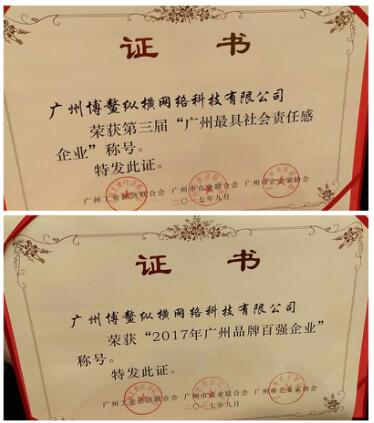 证 书
广州博鳌纵横网络科技有限公司
荣获第三届“广州最具社会责任感
企业”称号。
特发此证。
广州工业经济联合会 广州市企业联合会 广州市企业家协会
二〇一七年九月
证 书
广州博鳌纵横网络科技有限公司
荣获“2017年广州品牌百强企业”
称号。
特发此证。
广州工业经济联合会 广州市企业联合会 广州市企业家协会
二〇一七年九月